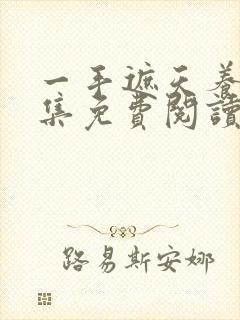 一手遮天養
集免費閱讀
路易斯安娜